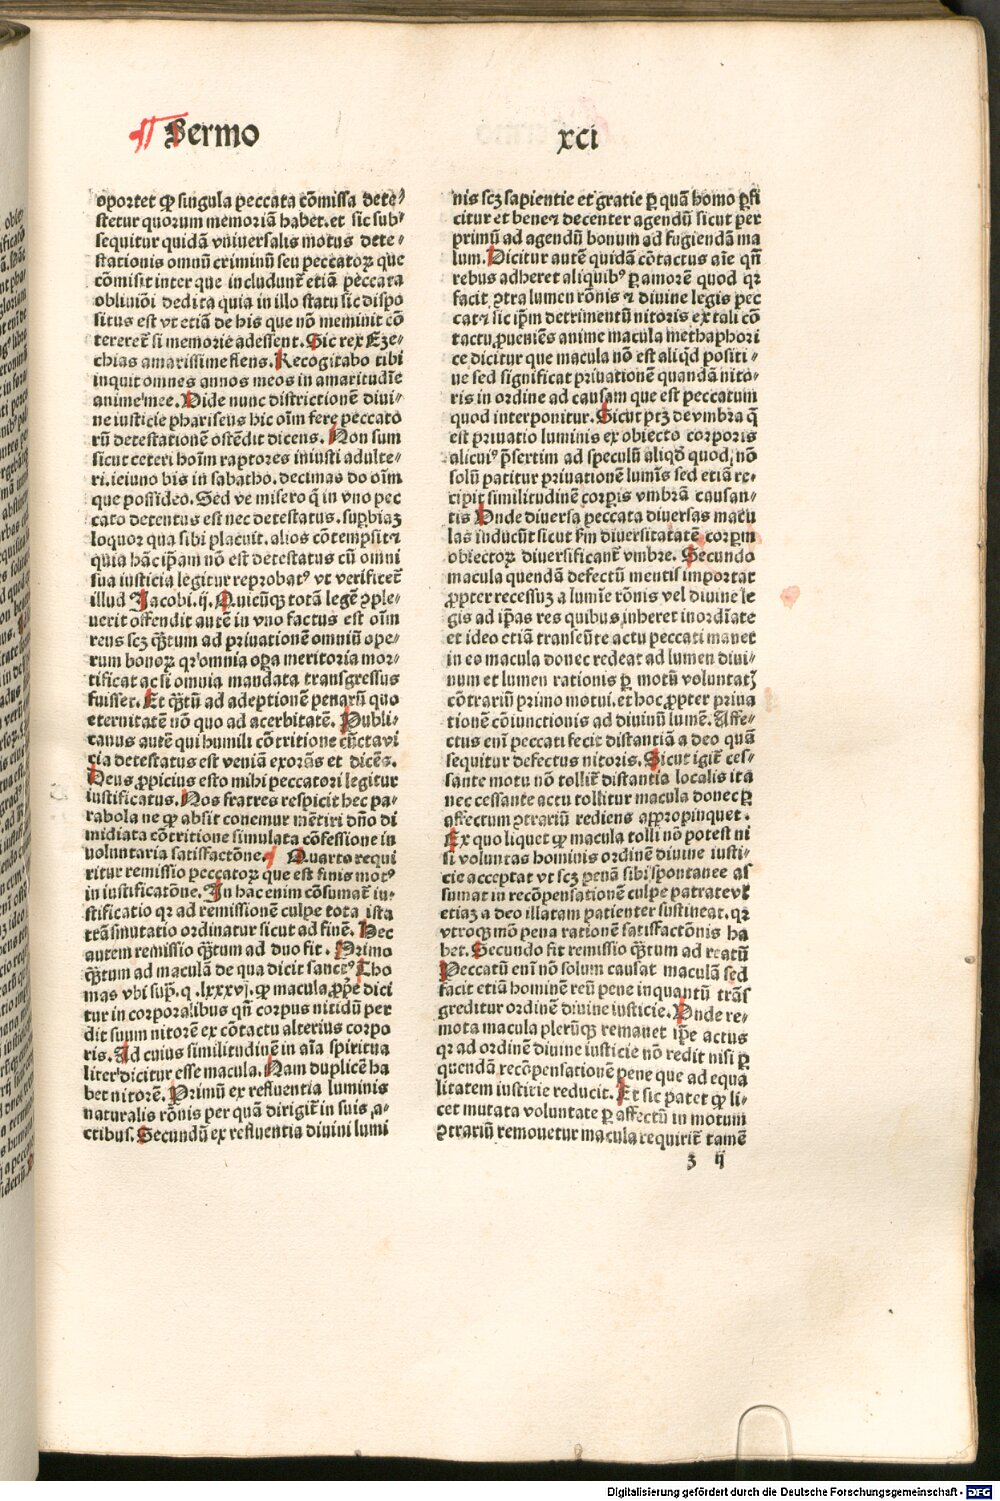 Sermo xci
oportet ꝙ singula peccata cōmissa dete⸗
stetur quorum memoriā habet. et sic sub⸗
sequitur quidā vniuersalis motus dete⸗
stationis omniū criminū seu peccatoꝝ que
cōmisit inter que includunt᷑ etiā peccata
obliuiōi dedita quia in illo statu sic dispo
situs est vt etiā de his que nō meminit cō
tereret᷑ si memorie adessent. Sic rex Eze⸗
chias amarissime flens. Recogitabo tibi
inquit omnes annos meos in amaritudīe
anime mee. Vide nunc districtionē diui⸗
ne iusticie phariseus hic oīm fere peccato
rū detestationē ostēdit dicens. Non sum
sicut ceteri hoīm raptores iniusti adulte⸗
ri. ieiuno bis in sabatho. decimas do oīm
que possideo. Sed ve misero q̄ in vno pec
cato detentus est nec detestatus. suꝑbiaꝫ
loquor qua sibi placuit. alios cōtempsit ⁊
quia hāc ip̄am nō est detestatus cū omni
sua iusticia legitur reprobatꝰ vt verificet᷑
illud Jacobi. ij. Quicūqꝫ totā legē ꝯple⸗
uerit offendit autē in vno factus est oīm
reus scꝫ q̄ꝫtum ad priuationē omniū ope⸗
rum bonoꝝ qꝛ omnia oꝑa meritoria mor⸗
tificat ac si omnia mandata transgressus
fuisset. Et q̄ꝫtū ad adeptionē penarū quo
eternitatē nō quo ad acerbitatē. Publi⸗
canus autē qui humili cōtritione cūctavi
cia detestatus est veniā exorās et dicēs.
Deus ꝓpicius esto mihi peccatori legitur
iustificatus. Nos fratres respicit hec pa⸗
rabola ne ꝙ absit conemur mētiri dn̄o di
midiata cōtritione simulata cōfessione in
voluntaria satisfactōne. Quarto requi
ritur remissio peccatoꝝ que est finis motꝰ
in iustificatōne. In hac enim cōsumat᷑ iu⸗
stificatio qꝛ ad remissionē culpe tota ista
trāsmutatio ordinatur sicut ad finē. Hec
autem remissio q̄ꝫtum ad duo fit. Primo
q̄ꝫtum ad maculā de qua dicit sanctꝰ Tho
mas vbi suꝑ. q. lxxxvj. ꝙ macula ꝓp̄e dici
tur in corporalibus qn̄ corpus nitidū per
dit suum nitorē ex cōtactu alterius corpo
ris. Ad cuius similitudinē in aīa spiritua
liter dicitur esse macula. Nam duplicē ha
bet nitorē. Primū ex refluentia luminis
naturalis rōnis per quā dirigit᷑ in suis a⸗
ctibus. Secundū ex refluentia diuini lumi
nis scꝫ sapientie et gratie ꝑ quā homo ꝑfi
citur et bene ⁊ decenter agendū sicut per
primū ad agendū bonum ad fugiendā ma
lum. Dicitur autē quidā cōtactus aīe qn̄
rebus adheret aliquibꝰ ꝑ amorē quod qꝛ
facit ꝯtra lumen rōnis ⁊ diuine legis pec
cat ⁊ sic ip̄m detrimentū nitoris ex tali cō
tactu ꝓueniēs anime macula methaphori
ce dicitur que macula nō est aliqͥd positi⸗
ue sed significat priuationē quandā nito⸗
ris in ordine ad causam que est peccatum
quod interponitur. Sicut ptꝫ de vmbra q̄
est priuatio luminis ex obiecto corporis
alicuiꝰ p̄sertim ad speculū aliqd̄ quod nō
solū patitur priuationē lumīs sed etiā re⸗
cipit similitudinē corpīs vmbrā causan⸗
tis Vnde diuersa peccata diuersas macu
las inducūt sicut ẜm diuersitatatē corpꝝm
obiectoꝝ diuersificant᷑ vmbre. Secundo
macula quendā defectū mentis importat
ꝓpter recessuꝫ a lumīe rōnis vel diuine le
gis ad ip̄as res quibus inheret inordīate
et ideo etiā transeūte actu peccati manet
in eo macula donec redeat ad lumen diui⸗
num et lumen rationis ꝑ motū voluntatꝫ
cōtrariū primo motui. et hoc ꝓpter priua
tionē cōiunctionis ad diuinū lumē. Affe⸗
ctus eni peccati fecit distantiā a deo quā
sequitur defectus nitoris. Sicut igit᷑ ces⸗
sante motu nō tollit᷑ distantia localis ita
nec cessante actu tollitur macula donec ꝑ
affectum ꝯtrariū rediens appropinquet.
Ex quo liquet ꝙ macula tolli nō potest ni
si voluntas hominis ordinē diuine iusti⸗
cie acceptat vt scꝫ penā sibi spontanee as
sumat in recōpensationē culpe patrate vꝉ
etiaꝫ a deo illatam patienter sustineat. qꝛ
vtroqꝫ mō pena rationē satisfactōnis ha
bet. Secundo fit remissio q̄ꝫtum ad reatū
Peccatū eni nō solum causat maculā sed
facit etiā hominē reū pene inquantū trās
greditur ordinē diuine iusticie. Vnde re⸗
mota macula plerūqꝫ remanet ip̄e actus
qꝛ ad ordinē diuine iusticie nō redit nisi ꝑ
quendā recōpensationē pene que ad equa
litatem iusticie reducit. Et sic patet ꝙ li⸗
cet mutata voluntate ꝑ affectū in motum
ꝯtrariū remouetur macula requirit᷑ tamē
z ij
Digitalisierung gefördert durch die Deutsche Forschungsgemeinschaft - DFG